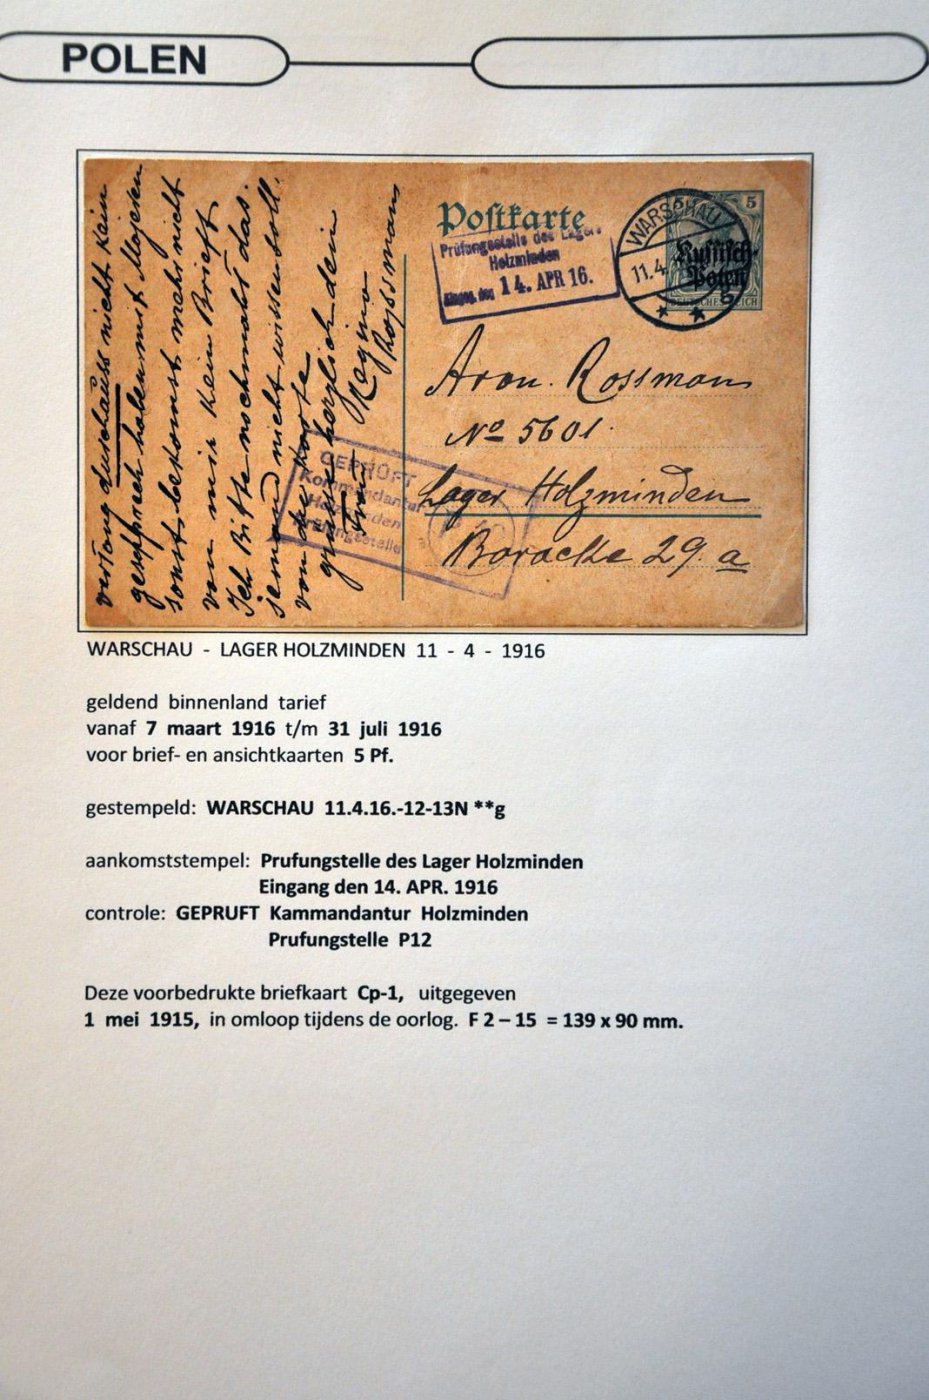 POLEN
Postkarte
Prüfungsstelle des Lagers
Holzminden
Eingeg. den 14. APR 16.
WARSCHAU
11.4
g
5
Russisch-
Polen
DEUTSCHES REICH
Aron. Rossman
No 5601.
Lager Holzminden
Baracke 29. a
GEPRÜFT
Kommandantur
Holzminden
Prüfungsstelle
durchaus nicht kein
gesprach haben mit Majeren
sonst bekomst mehr nicht
von mir kein Brieft
Ich Bitte nochmahl das
jemand nicht wissen soll.
von die Karte
grüsse herzlich dein
Frau Regina
Rossman
WARSCHAU - LAGER HOLZMINDEN 11 - 4 - 1916
geldend binnenland tarief
vanaf 7 maart 1916 t/m 31 juli 1916
voor brief- en ansichtkaarten 5 Pf.
gestempeld: WARSCHAU 11.4.16.-12-13N **g
aankomststempel: Prufungstelle des Lager Holzminden
Eingang den 14. APR. 1916
controle: GEPRUFT Kammandantur Holzminden
Prufungstelle P12
Deze voorbedrukte briefkaart Cp-1, uitgegeven
1 mei 1915, in omloop tijdens de oorlog. F 2 – 15 = 139 x 90 mm.